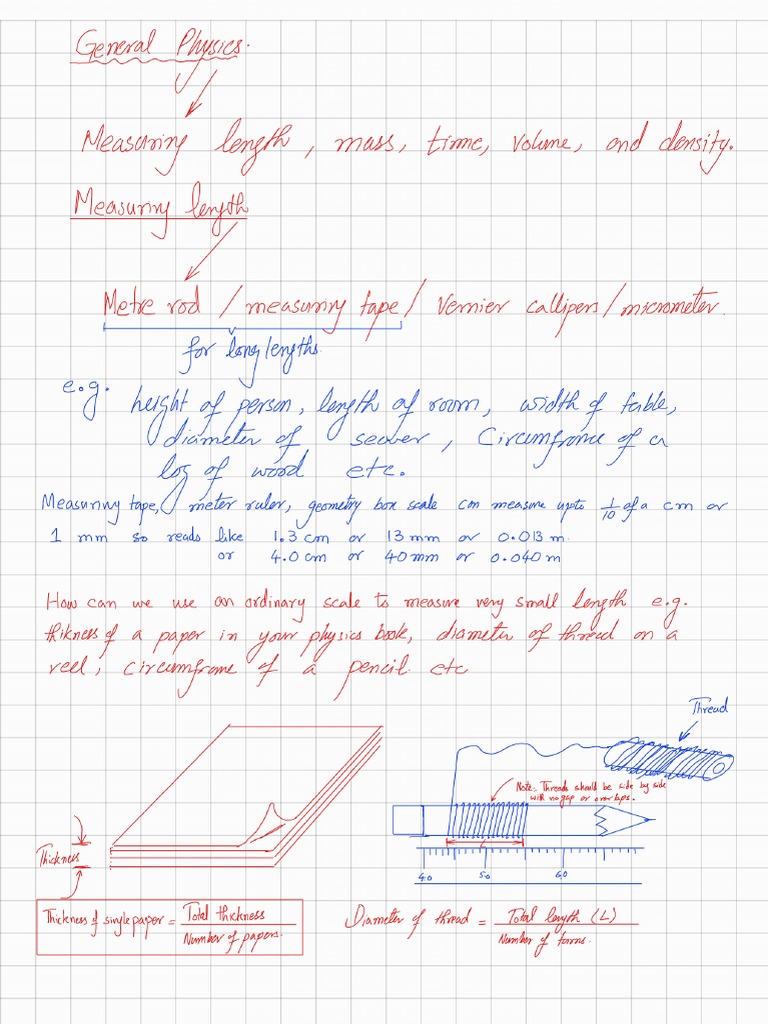 General Physics.
Measuring length, mass, time, volume, and density.
Measuring length
Metre rod / measuring tape / Vernier callipers / micrometer.
for long lengths.
e.g. height of person, length of room, width of table,
diameter of seaver, Circumfrance of a
log of wood etc.
Measuring tape, meter ruler, geometry box scale can measure upto 1/10 of a cm or
1 mm so reads like 1.3 cm or 13 mm or 0.013 m.
or 4.0 cm or 40 mm or 0.040 m
How can we use an ordinary scale to measure very small length e.g.
thikness of a paper in your physics book, diameter of thread on a
reel, circumfrance of a pencil etc
Thread
Note:- Threads should be side by side
with no gap or overlaps.
L
Thickness
4.0 5.0 6.0
Thickness of single paper = Total thickness / Number of papers.
Diameter of thread = Total length (L) / Number of turns.